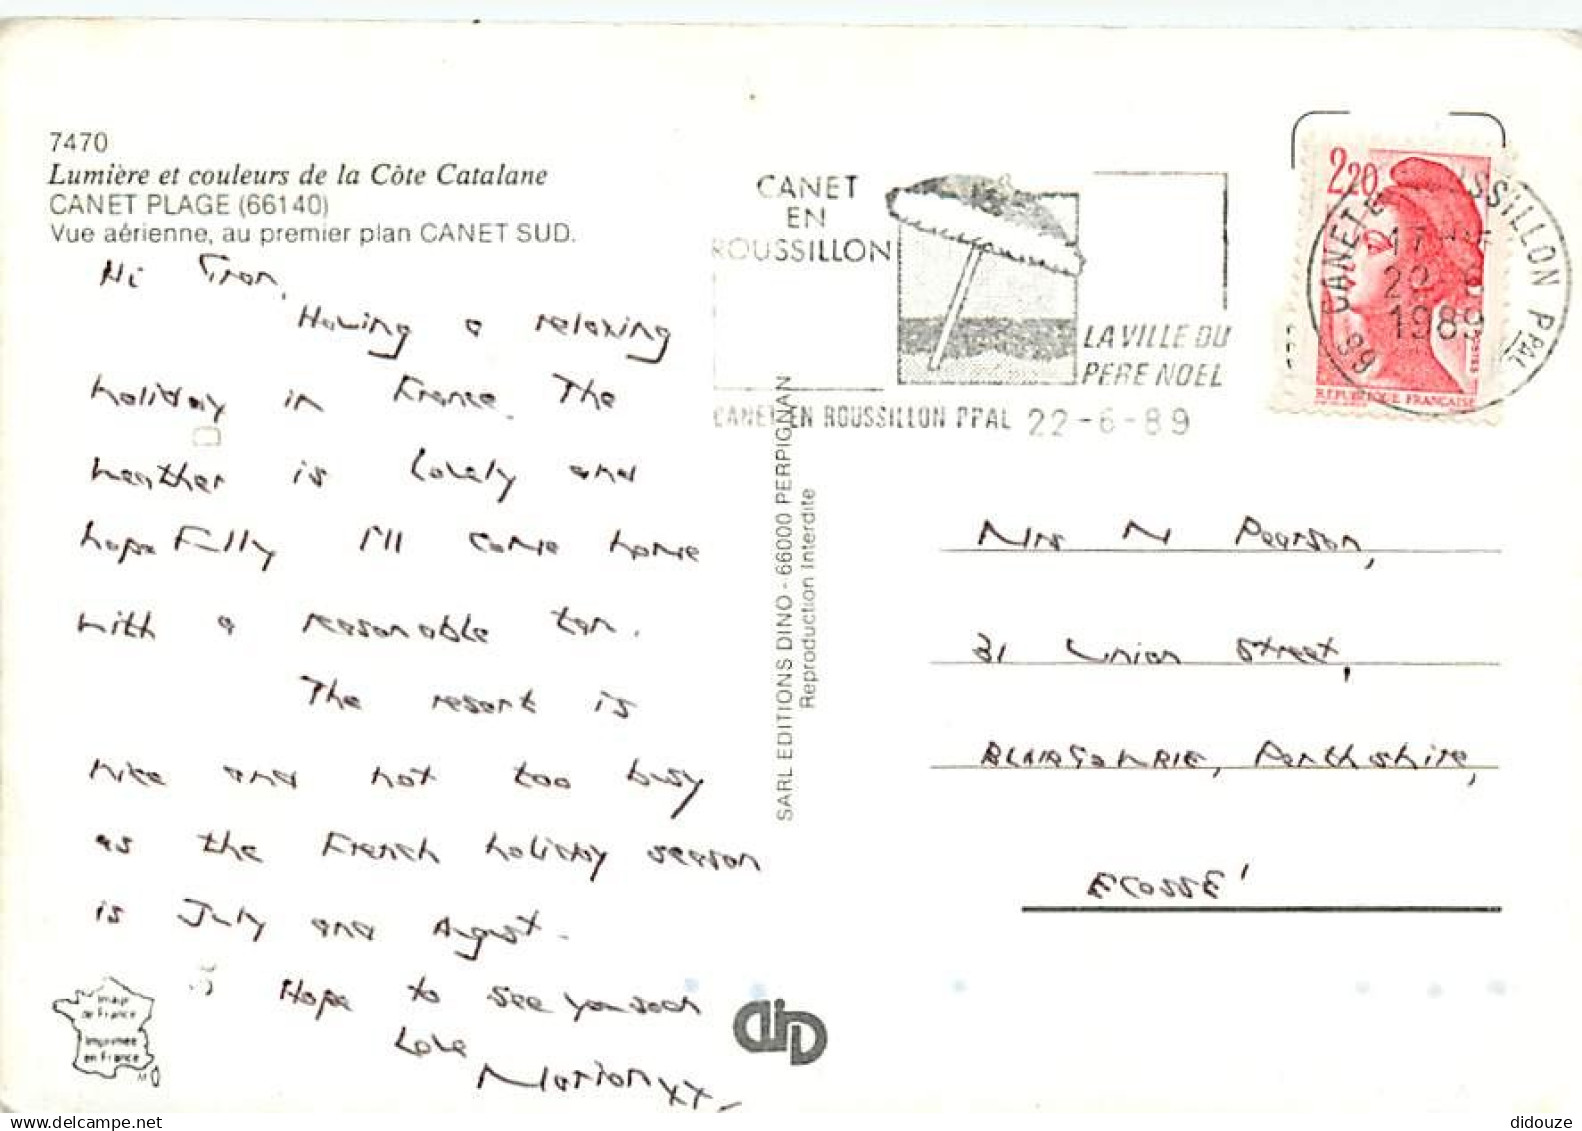 7470
Lumière et couleurs de la Côte Catalane
CANET PLAGE (66140)
Vue aérienne, au premier plan CANET SUD.
Hi Fran,
Having a relaxing
holiday in France. The
weather is lovely and
hopefully I'll come home
with a reasonable tan.
The resort is
nice and not too busy
as the French holiday season
is July and August.
Hope to see you soon
Love
Marion xx
Image
de France
Imprimée
en France
SARL EDITIONS DINO - 66000 PERPIGNAN
Reproduction Interdite
CANET
EN
ROUSSILLON
LA VILLE DU
PERE NOEL
CANET EN ROUSSILLON PPAL 22-6-89
2,20
REPUBLIQUE FRANÇAISE
66 CANET E ROUSSILLON PPAL
1989
Mrs N Pearson,
31 Union Street,
BLAIRGOWRIE, Perthshire,
ECOSSE!
didouze